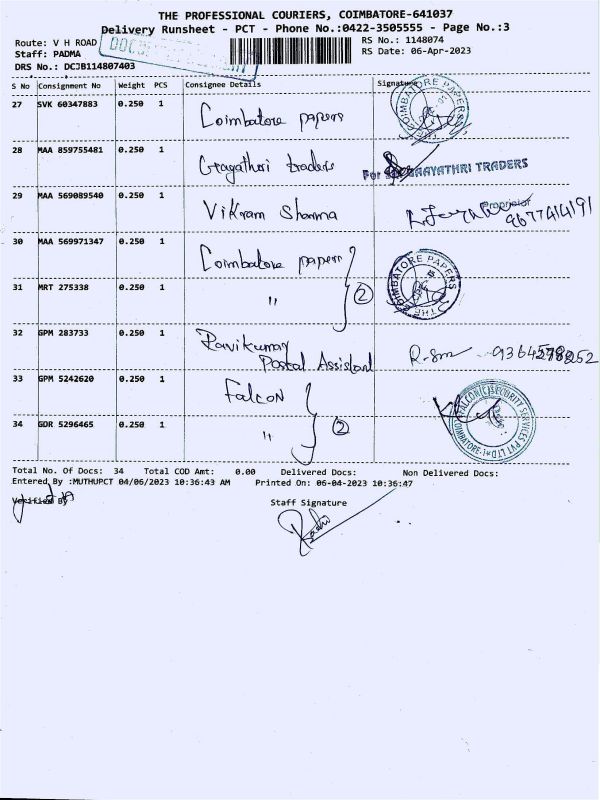 THE PROFESSIONAL COURIERS, COIMBATORE-641037
Delivery Runsheet - PCT - Phone No.:0422-3505555 - Page No.:3
Route: V H ROAD
RS No.: 1148074
Staff: PADMA
RS Date: 06-Apr-2023
DRS No.: DCJB114807403
S No Consignment No Weight PCS Consignee Details Signature
27 SVK 60347883 0.250 1 Coimbatore papers
THE COIMBATORE PAPERS
28 MAA 859755481 0.250 1 Gragathri traders
For GAAYATHRI TRADERS
29 MAA 569089540 0.250 1 Vikram Sharma
Proprietor
9677414191
30 MAA 569971347 0.250 1 Coimbatore papers
THE COIMBATORE PAPERS
31 MRT 275338 0.250 1 " 2
32 GPM 283733 0.250 1 Ravikumar
Postal Assistant R-sm
33 GPM 5242620 0.250 1 Falcon
FALCON(C)SECURITY SERVICES PVT LTD COIMBATORE-1
34 GDR 5296465 0.250 1 " 2
Total No. Of Docs: 34 Total COD Amt: 0.00 Delivered Docs: Non Delivered Docs:
Entered By :MUTHUPCT 04/06/2023 10:36:43 AM Printed On: 06-04-2023 10:36:47
Verified By Staff Signature